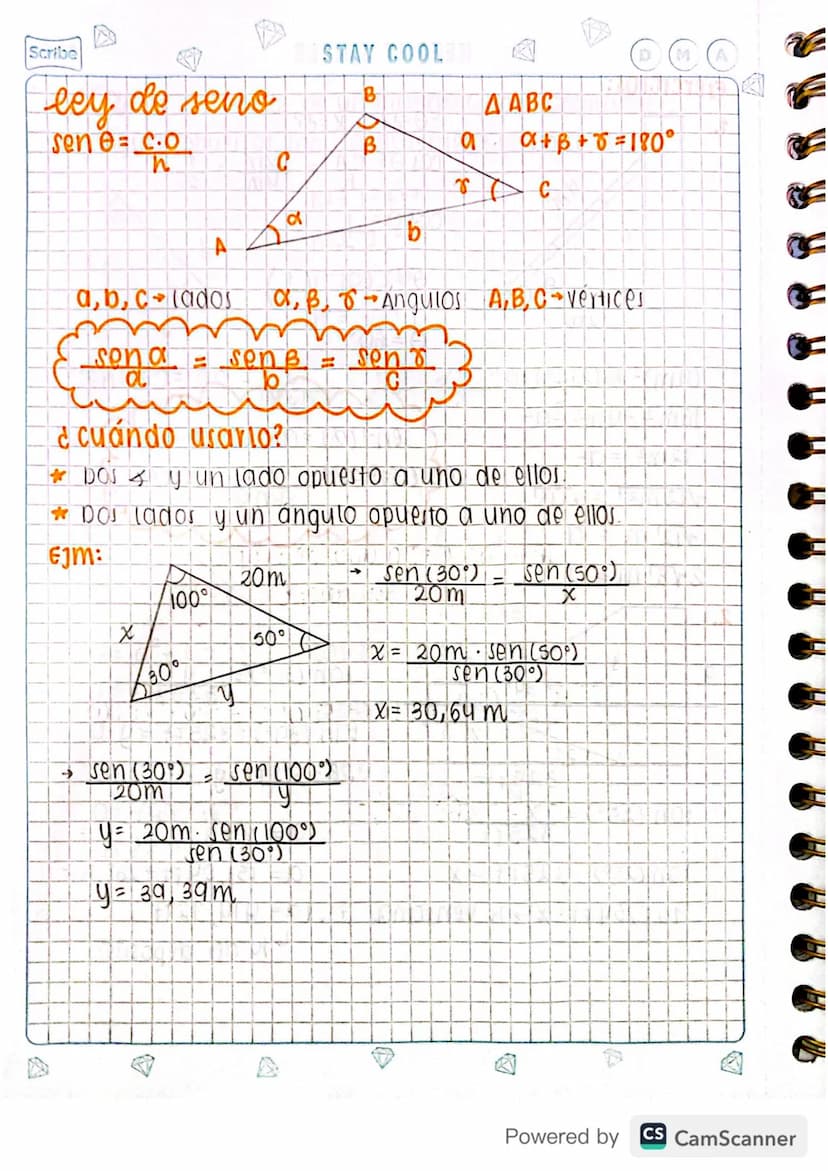 Scribe
STAY COOL
D M A
ley de seno
sen θ = c.o
h
B
β
c
a
γ
C
α
b
A
Δ ABC
α + β + γ = 180°
a, b, c → lados α, β, γ → Ángulos A, B, C → vértices
sen α = sen β = sen γ
a b c
¿cuándo usarlo?
* Dos ∡ y un lado opuesto a uno de ellos.
* Dos lados y un ángulo opuesto a uno de ellos.
EJm:
100°
20m
x
50°
30°
y
→ sen (30°) = sen (50°)
20m x
x = 20m · sen (50°)
sen (30°)
x = 30,64 m
→ sen (30°) = sen (100°)
20m y
y = 20m · sen (100°)
sen (30°)
y = 39,39m
Powered by CS CamScanner